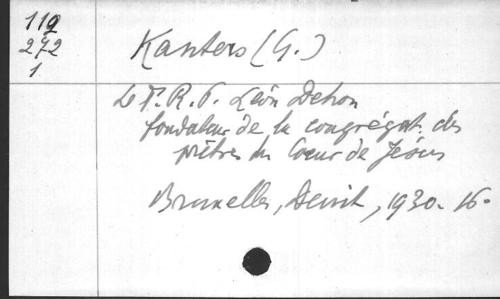 119
272
1
Kanters (G.)
Le T. R. P. Léon Dehon
fondateur de la congrégat. des
prêtres du Cœur de Jésus
Bruxelles, 1930. 16°